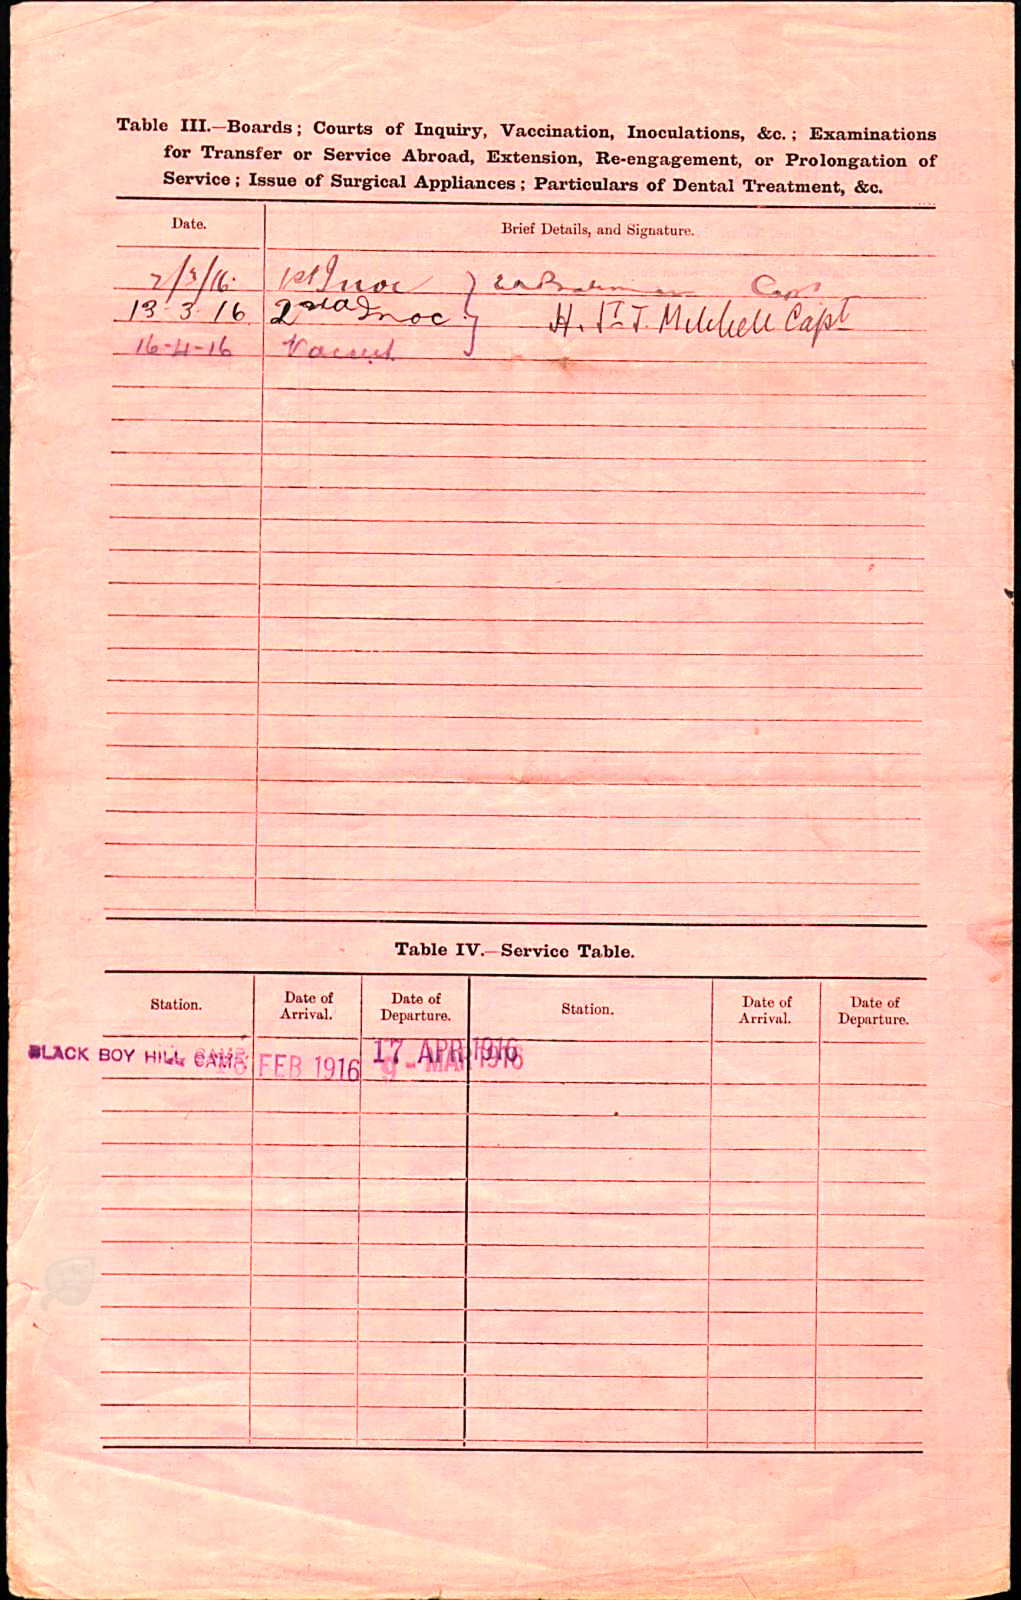 Table III.—Boards; Courts of Inquiry, Vaccination, Inoculations, &c.; Examinations
for Transfer or Service Abroad, Extension, Re-engagement, or Prolongation of
Service; Issue of Surgical Appliances; Particulars of Dental Treatment, &c.
Date. Brief Details, and Signature.
2/3/16. 1st Inoc } Capt
13·3·16 2nd Inoc } H. St J. Mitchell Capt
16-4-16 Vaccind
Table IV.—Service Table.
Station. Date of Arrival. Date of Departure. Station. Date of Arrival. Date of Departure.
BLACK BOY HILL CAMP 16 FEB 1916 17 APR 1916
9 - MAR 1916